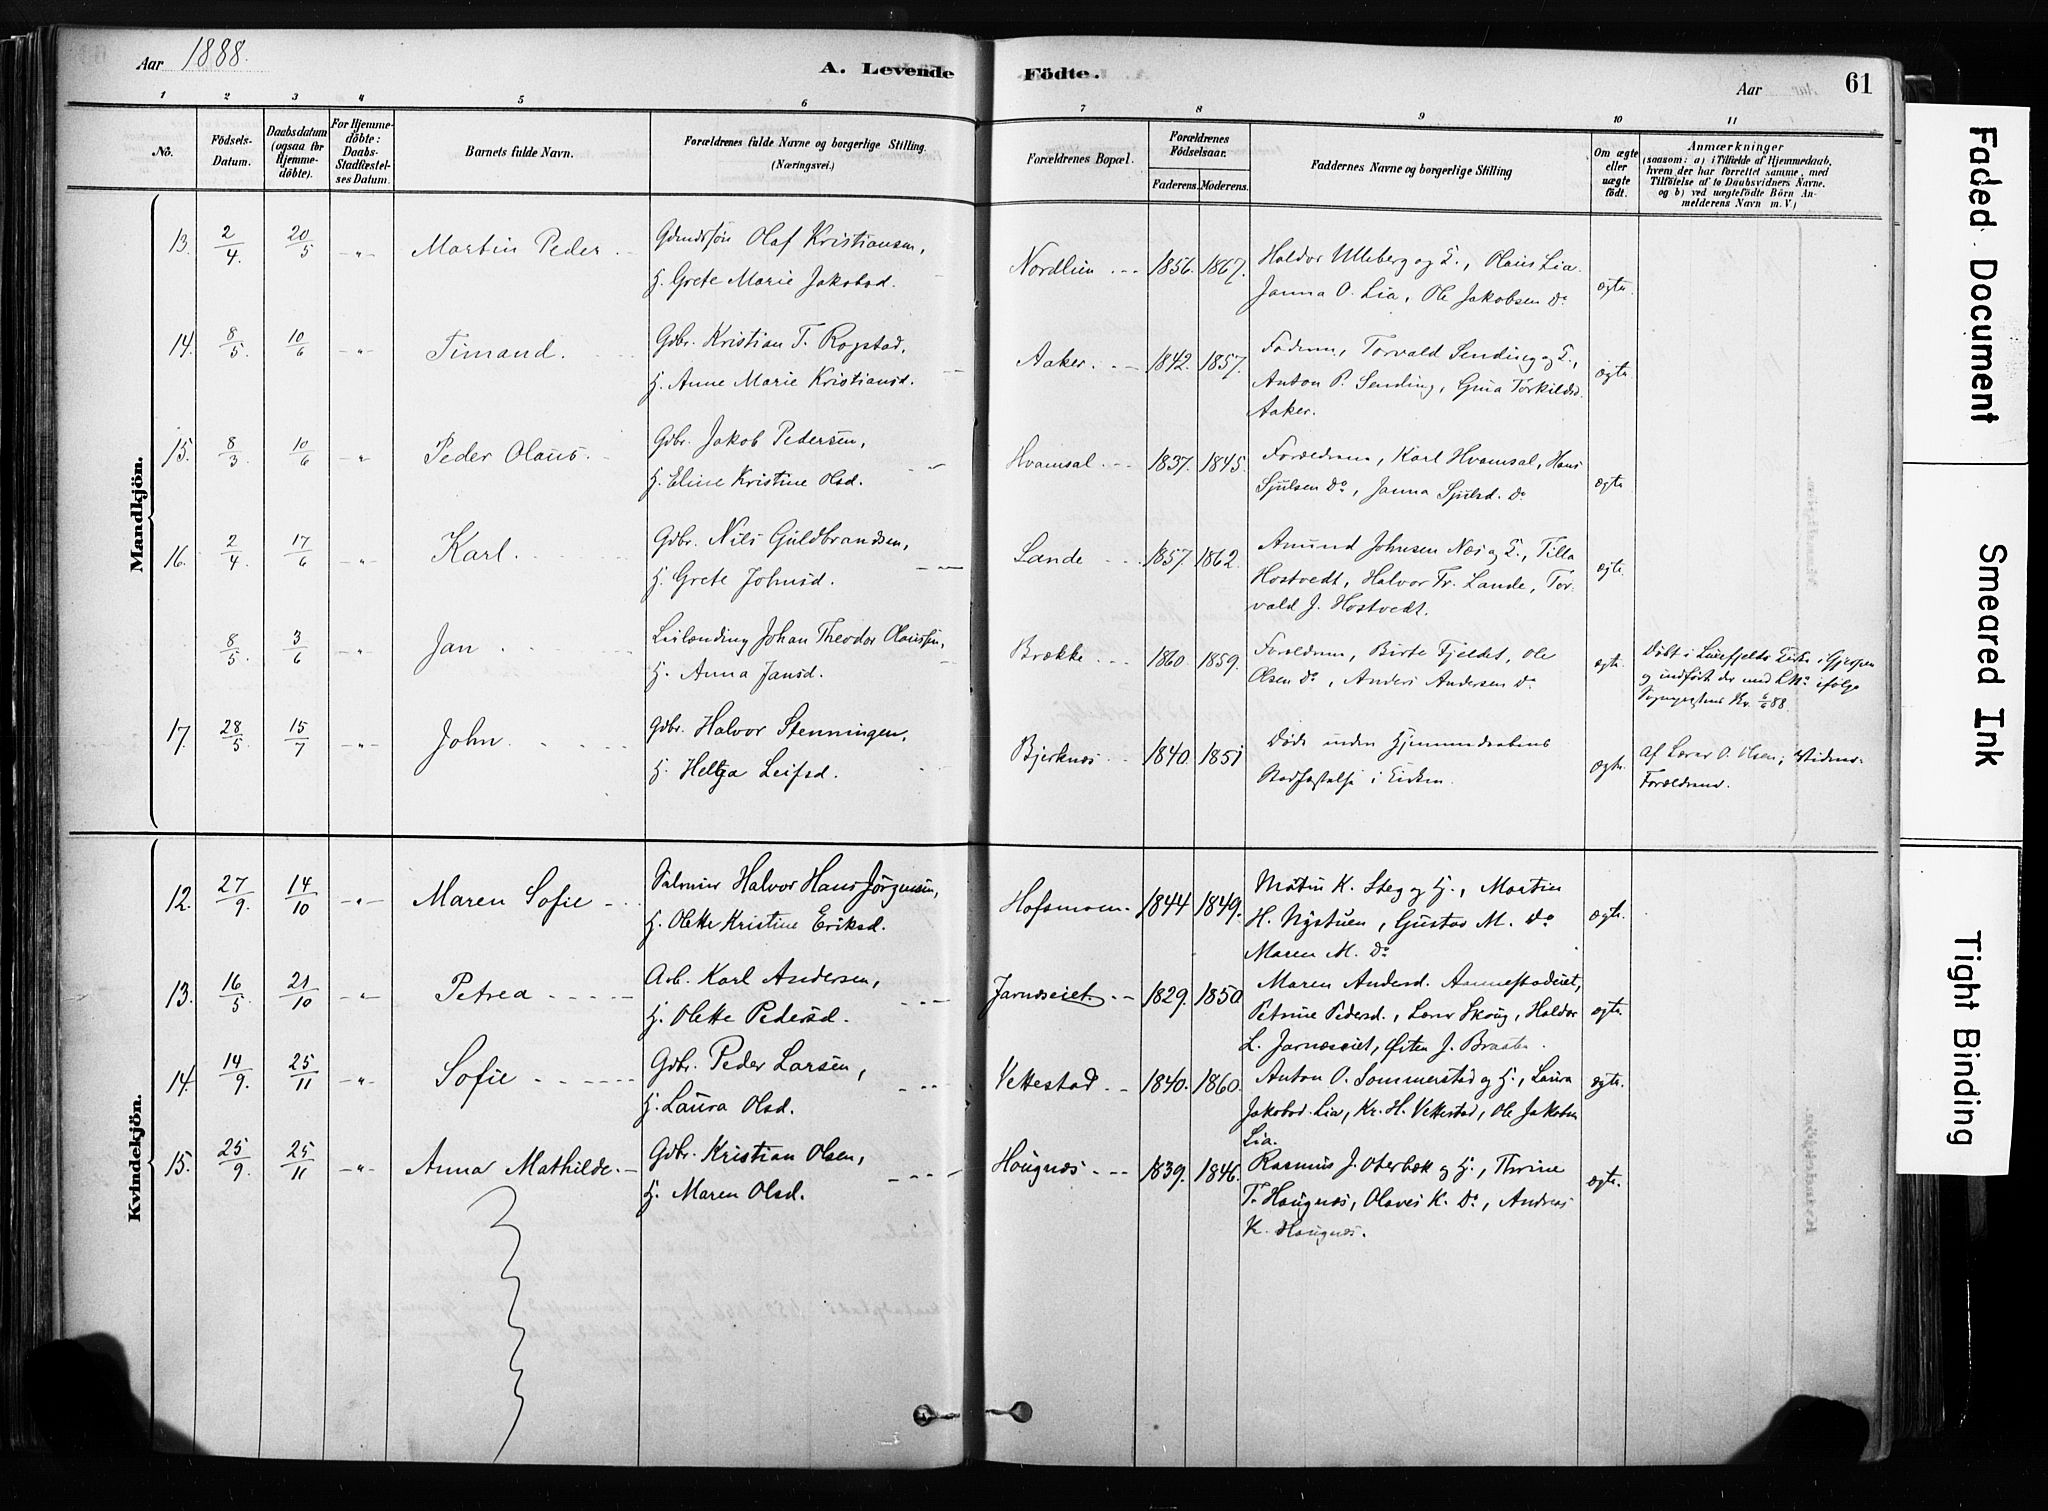 Aar 1888.
A. Levende Födte.
Aar
61
1 2 3 4 5 6 7 8 9 10 11
No.
Födsels-Datum.
Daabsdatum (ogsaa for Hjemme-döbte).
For Hjemme-döbte: Daabs-Stadfæstel-ses Datum.
Barnets fulde Navn.
Forældrenes fulde Navne og borgerlige Stilling. (Næringsvei.)
Forældrenes Bopæl.
Forældrenes Födselsaar.
Faderens. Moderens.
Faddernes Navne og borgerlige Stilling
Om ægte eller uægte födt.
Anmærkninger
(saasom: a) i Tilfælde af Hjemmedaab, hvem der har forrettet samme, med Tilföielse af to Daabsvidners Navne, og b) ved uægtefödte Börn An-melderens Navn m. V.)
Mandkjön.
13. 2/4. 20/5 -"- Martin Peder Olaf Kristiansen,
H. Grete Marie Jakobsd. Nordlien 1856. 1867. Haldor Ulleberg og H., Olaus Lia
Janna O. Lia, Ole Jakobsen Do ægte.
14. 8/5. 10/6 -"- Timand. Gdbr. Kristian T. Rogstad,
H. Anne Marie Kristiansd. Aaker. 1842. 1857. Faderen, Torvald Sending og H.,
Anton P. Sending, Gina Torkildsd.
Aaker. ægte
15. 8/3 10/6 -"- Peder Olaus. Gdbr. Jakob Pedersen,
H. Eline Kristine Olsd. Hvamsal 1837. 1845. Forældrene, Karl Hvamsal, Hans
Sjulsen Do, Janna Sjulsd. Do ægte
16. 2/4. 17/6 -"- Karl. Gdbr. Nils Guldbrandsen,
H. Grete Johnsd. Lande 1857. 1862. Amund Johnsen Næs og H., Tilla
Hostvedt, Halvor Fr. Lande, Tor-
vald J. Hostvedt. ægte.
8/5. 3/6 -"- Jan Leilænding Johan Theodor Olaussen,
H. Anna Jansd. Brække 1860. 1859. Forældrene, Birte Fjeldet, Ole
Olsen Do, Anders Andersen Do ægte. Döbt i Luxefjelds Kirke i Gjerpen
og indfört der med L No ifölge
17. 28/5. 15/7 -"- John. Gdbr. Halvor Stenningen,
H. Helga Leifsd. Bjerknes 1840. 1851 Döde inden Hjemmedaabens
Stadfæstelse i Kirken. ægte. Af Lærer O. Olsen, Vidner
Forældrene.
Kvindekjön.
12. 27/9. 14/10 -"- Maren Sofie Halvor Hans Jörgensen,
H. Olette Kristine Eriksd. Hofsmoen 1844 1849. K. Steg og H., Martin
H. Nystuen, Gustav M. Do
Maren M. Do ægte.
13. 16/5. 21/10 -"- Petrea Arb. Karl Andersen,
H. Olette Pedersd. Jarnæseiet. 1829. 1850 Maren Andersd. Aannestadeiet,
Petrine Pedersd., Lars Skoug, Haldor
L. Jarnæseiet, Østen J. Braaten. ægte.
14. 14/9. 25/11 -"- Sofie Gdbr. Peder Larsen,
H. Laura Olsd. Vettestad 1840. 1860. Anton O. Sommerstad og H., Laura
Jakobsd. Lia, Kr. H. Vettestad, Ole Jakobsen
Lia. ægte.
15. 25/9. 25/11 -"- Anna Mathilde. Gdbr. Kristian Olsen,
H. Maren Olsd. Hougnæs 1839. 1846. Rasmus J. Oterbæk og H., Thrine
T. Hougnæs, Olaves K. Do, Andreas
K. Hougnæs. ægte.
Faded Document
Smeared Ink
Tight Binding